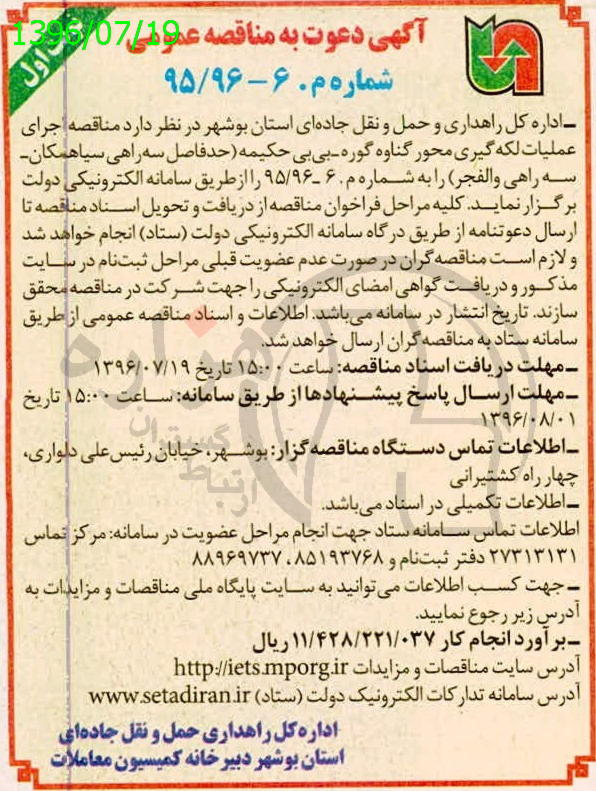 1396/07/19
نوبت اول
آگهی دعوت به مناقصه عمومی
شماره م. ۶ - ۹۵/۹۶
ـ اداره کل راهداری و حمل و نقل جاده‌ای استان بوشهر در نظر دارد مناقصه اجرای
عملیات لکه گیری محور گناوه گوره ـ بی‌بی حکیمه (حدفاصل سه‌راهی سیاهمکان ـ
سه راهی والفجر) را به شماره م. ۶ ـ ۹۵/۹۶ را از طریق سامانه الکترونیکی دولت
برگزار نماید. کلیه مراحل فراخوان مناقصه از دریافت و تحویل اسناد مناقصه تا
ارسال دعوتنامه از طریق درگاه سامانه الکترونیکی دولت (ستاد) انجام خواهد شد
و لازم است مناقصه‌گران در صورت عدم عضویت قبلی مراحل ثبت‌نام در سایت
مذکور و دریافت گواهی امضای الکترونیکی را جهت شرکت در مناقصه محقق
سازند. تاریخ انتشار در سامانه می‌باشد. اطلاعات و اسناد مناقصه عمومی از طریق
سامانه ستاد به مناقصه گران ارسال خواهد شد.
ـ مهلت دریافت اسناد مناقصه: ساعت ۱۵:۰۰ تاریخ ۱۳۹۶/۰۷/۱۹
ـ مهلت ارسال پاسخ پیشنهادها از طریق سامانه: ساعت ۱۵:۰۰ تاریخ
۱۳۹۶/۰۸/۰۱
ـ اطلاعات تماس دستگاه مناقصه‌گزار: بوشهر، خیابان رئیس‌علی دلواری،
چهار راه کشتیرانی
ـ اطلاعات تکمیلی در اسناد می‌باشد.
اطلاعات تماس سامانه ستاد جهت انجام مراحل عضویت در سامانه: مرکز تماس
۲۷۳۱۳۱۳۱ دفتر ثبت‌نام و ۸۵۱۹۳۷۶۸، ۸۸۹۶۹۷۳۷
ـ جهت کسب اطلاعات می‌توانید به سایت پایگاه ملی مناقصات و مزایدات به
آدرس زیر رجوع نمایید.
ـ برآورد انجام کار ۱۱/۴۲۸/۲۲۱/۰۳۷ ریال
آدرس سایت مناقصات و مزایدات http://iets.mporg.ir
آدرس سامانه تدارکات الکترونیک دولت (ستاد) www.setadiran.ir
اداره کل راهداری حمل و نقل جاده‌ای
استان بوشهر دبیرخانه کمیسیون معاملات
هزاره
گستران
ارتباط